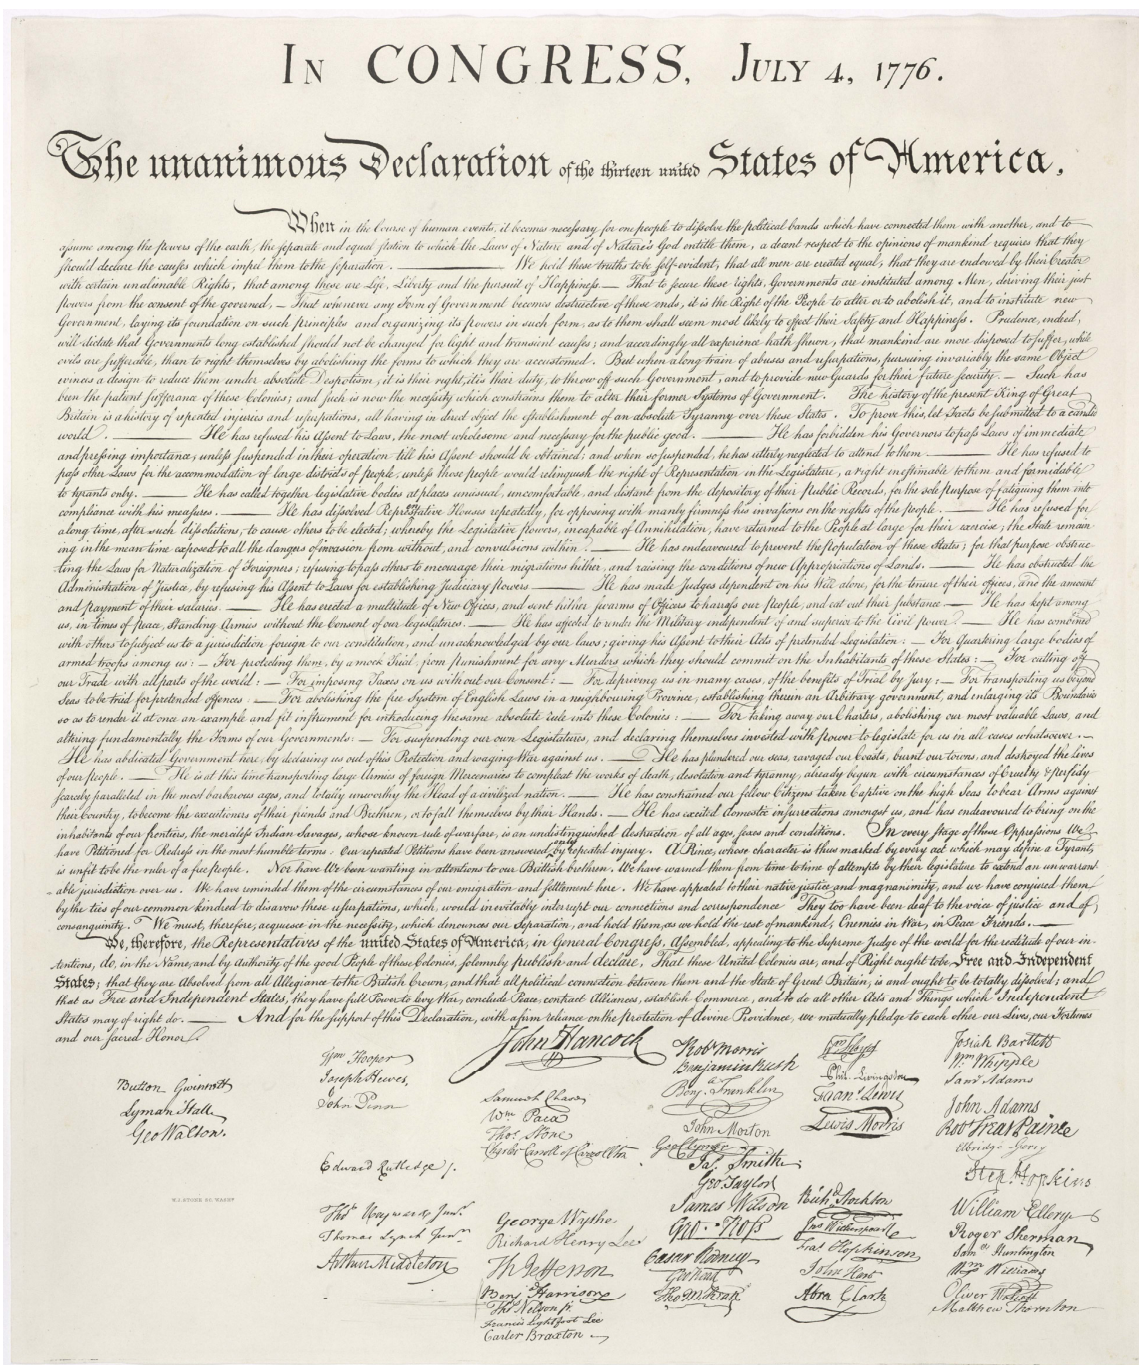 In CONGRESS, July 4, 1776.
The unanimous Declaration of the thirteen united States of America,
When in the Course of human events, it becomes necessary for one people to dissolve the political bands which have connected them with another, and to
assume among the powers of the earth, the separate and equal station to which the Laws of Nature and of Nature's God entitle them, a decent respect to the opinions of mankind requires that they
should declare the causes which impel them to the separation. ——— We hold these truths to be self-evident, that all men are created equal, that they are endowed by their Creator
with certain unalienable Rights, that among these are Life, Liberty and the pursuit of Happiness.— That to secure these rights, Governments are instituted among Men, deriving their just
powers from the consent of the governed,— That whenever any Form of Government becomes destructive of these ends, it is the Right of the People to alter or to abolish it, and to institute new
Government, laying its foundation on such principles and organizing its powers in such form, as to them shall seem most likely to effect their Safety and Happiness. Prudence, indeed,
will dictate that Governments long established should not be changed for light and transient causes; and accordingly all experience hath shewn, that mankind are more disposed to suffer, while
evils are sufferable, than to right themselves by abolishing the forms to which they are accustomed. But when a long train of abuses and usurpations, pursuing invariably the same Object
evinces a design to reduce them under absolute Despotism, it is their right, it is their duty, to throw off such Government, and to provide new Guards for their future security.— Such has
been the patient sufferance of these Colonies; and such is now the necessity which constrains them to alter their former Systems of Government. The history of the present King of Great
Britain is a history of repeated injuries and usurpations, all having in direct object the establishment of an absolute Tyranny over these States. To prove this, let Facts be submitted to a candid
world. ——— He has refused his Assent to Laws, the most wholesome and necessary for the public good. ——— He has forbidden his Governors to pass Laws of immediate
and pressing importance, unless suspended in their operation till his Assent should be obtained; and when so suspended, he has utterly neglected to attend to them. ——— He has refused to
pass other Laws for the accommodation of large districts of people, unless those people would relinquish the right of Representation in the Legislature, a right inestimable to them and formidable
to tyrants only. ——— He has called together legislative bodies at places unusual, uncomfortable, and distant from the depository of their Public Records, for the sole purpose of fatiguing them into
compliance with his measures. ——— He has dissolved Representative Houses repeatedly, for opposing with manly firmness his invasions on the rights of the people. ——— He has refused for
a long time, after such dissolutions, to cause others to be elected; whereby the Legislative powers, incapable of Annihilation, have returned to the People at large for their exercise; the State remain
ing in the mean time exposed to all the dangers of invasion from without, and convulsions within. ——— He has endeavoured to prevent the population of these States; for that purpose obstruc-
ting the Laws for Naturalization of Foreigners; refusing to pass others to encourage their migrations hither, and raising the conditions of new Appropriations of Lands. ——— He has obstructed the
Administration of Justice, by refusing his Assent to Laws for establishing Judiciary powers ——— He has made Judges dependent on his Will alone, for the tenure of their offices, and the amount
and payment of their salaries. ——— He has erected a multitude of New Offices, and sent hither swarms of Officers to harrass our people, and eat out their substance. ——— He has kept among
us, in times of peace, Standing Armies without the Consent of our legislatures. ——— He has affected to render the Military independent of and superior to the Civil power. ——— He has combined
with others to subject us to a jurisdiction foreign to our constitution, and unacknowledged by our laws; giving his Assent to their Acts of pretended Legislation:— For Quartering large bodies of
armed troops among us:— For protecting them, by a mock Trial, from punishment for any Murders which they should commit on the Inhabitants of these States:— For cutting off
our Trade with all parts of the world:— For imposing Taxes on us without our Consent:— For depriving us in many cases, of the benefits of Trial by Jury:— For transporting us beyond
Seas to be tried for pretended offences — For abolishing the free System of English Laws in a neighbouring Province, establishing therein an Arbitrary government, and enlarging its Boundaries
so as to render it at once an example and fit instrument for introducing the same absolute rule into these Colonies:— For taking away our Charters, abolishing our most valuable Laws, and
altering fundamentally the Forms of our Governments:— For suspending our own Legislatures, and declaring themselves invested with power to legislate for us in all cases whatsoever.—
He has abdicated Government here, by declaring us out of his Protection and waging War against us.— He has plundered our seas, ravaged our Coasts, burnt our towns, and destroyed the lives
of our people.— He is at this time transporting large Armies of foreign Mercenaries to compleat the works of death, desolation and tyranny, already begun with circumstances of Cruelty & perfidy
scarcely paralleled in the most barbarous ages, and totally unworthy the Head of a civilized nation.— He has constrained our fellow Citizens taken Captive on the high Seas to bear Arms against
their Country, to become the executioners of their friends and Brethren, or to fall themselves by their Hands.— He has excited domestic insurrections amongst us, and has endeavoured to bring on the
inhabitants of our frontiers, the merciless Indian Savages, whose known rule of warfare, is an undistinguished destruction of all ages, sexes and conditions. In every stage of these Oppressions We
have Petitioned for Redress in the most humble terms: Our repeated Petitions have been answered only by repeated injury. A Prince, whose character is thus marked by every act which may define a Tyrant,
is unfit to be the ruler of a free people. Nor have We been wanting in attentions to our Brittish brethren. We have warned them from time to time of attempts by their legislature to extend an unwarrant-
able jurisdiction over us. We have reminded them of the circumstances of our emigration and settlement here. We have appealed to their native justice and magnanimity, and we have conjured them
by the ties of our common kindred to disavow these usurpations, which, would inevitably interrupt our connections and correspondence They too have been deaf to the voice of justice and of
consanguinity. We must, therefore, acquiesce in the necessity, which denounces our Separation, and hold them, as we hold the rest of mankind, Enemies in War, in Peace Friends. ———
We, therefore, the Representatives of the united States of America, in General Congress, Assembled, appealing to the Supreme Judge of the world for the rectitude of our in-
tentions, do, in the Name, and by Authority of the good People of these Colonies, solemnly publish and declare, That these United Colonies are, and of Right ought to be Free and Independent
States; that they are Absolved from all Allegiance to the British Crown, and that all political connection between them and the State of Great Britain, is and ought to be totally dissolved; and
that as Free and Independent States, they have full Power to levy War, conclude Peace, contract Alliances, establish Commerce, and to do all other Acts and Things which Independent
States may of right do. ——— And for the support of this Declaration, with a firm reliance on the protection of divine Providence, we mutually pledge to each other our Lives, our Fortunes
and our sacred Honor.
Button Gwinnett
Lyman Hall
Geo Walton.
W.J. STONE SC. WASHN
Wm Hooper
Joseph Hewes,
John Penn
Edward Rutledge /.
Thos Heyward Junr.
Thomas Lynch Junr.
Arthur Middleton
John Hancock
Samuel Chase
Wm. Paca
Thos. Stone
Charles Carroll of Carrollton
George Wythe
Richard Henry Lee
Th Jefferson
Benj Harrison
Thos Nelson jr.
Francis Lightfoot Lee
Carter Braxton
Robt Morris
Benjamin Rush
Benj. Franklin
John Morton
Geo Clymer
Jas. Smith.
Geo Taylor
James Wilson
Geo. Ross
Caesar Rodney
Geo Read
Tho M:Kean
Wm Floyd
Phil. Livingston
Frans. Lewis
Lewis Morris
Richd. Stockton
Jno Witherspoon
Fras. Hopkinson
John Hart
Abra Clark
Josiah Bartlett
Wm. Whipple
Saml Adams
John Adams
Robt Treat Paine
Elbridge Gerry
Step. Hopkins
William Ellery
Roger Sherman
Saml Huntington
Wm Williams
Oliver Wolcott
Matthew Thornton